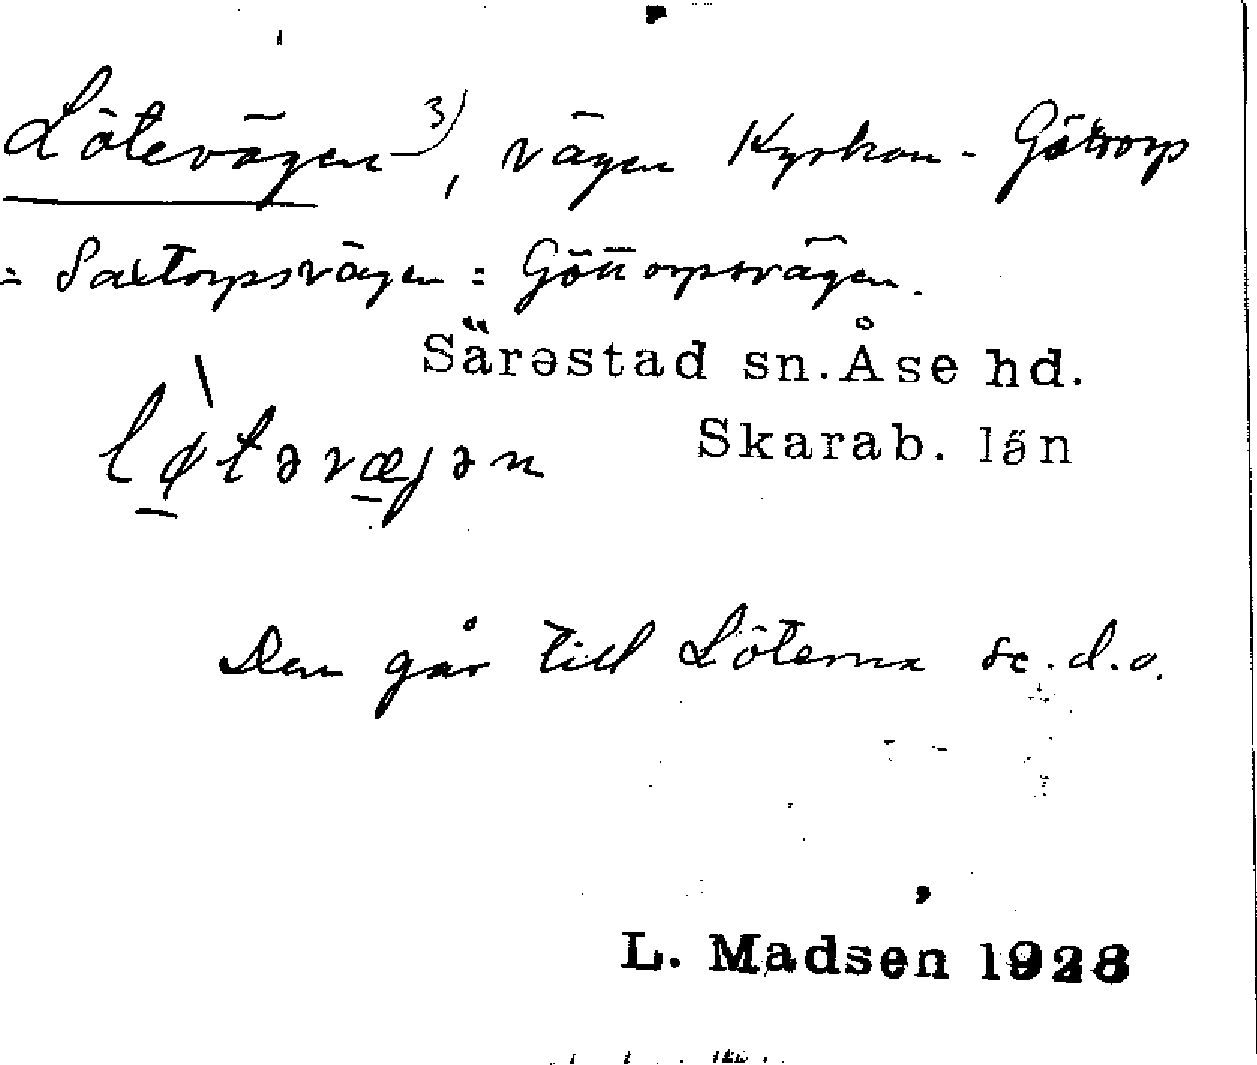 Lötevägen 3), vägen Kyrkan - Göttorp
= Saxtorpsvägen = Göttorpsvägen.
Särəstad sn. Åse hd.
Skarab. län
lø̀təvæjən
Den går till Löterna se. d.o.
L. Madsen 1928